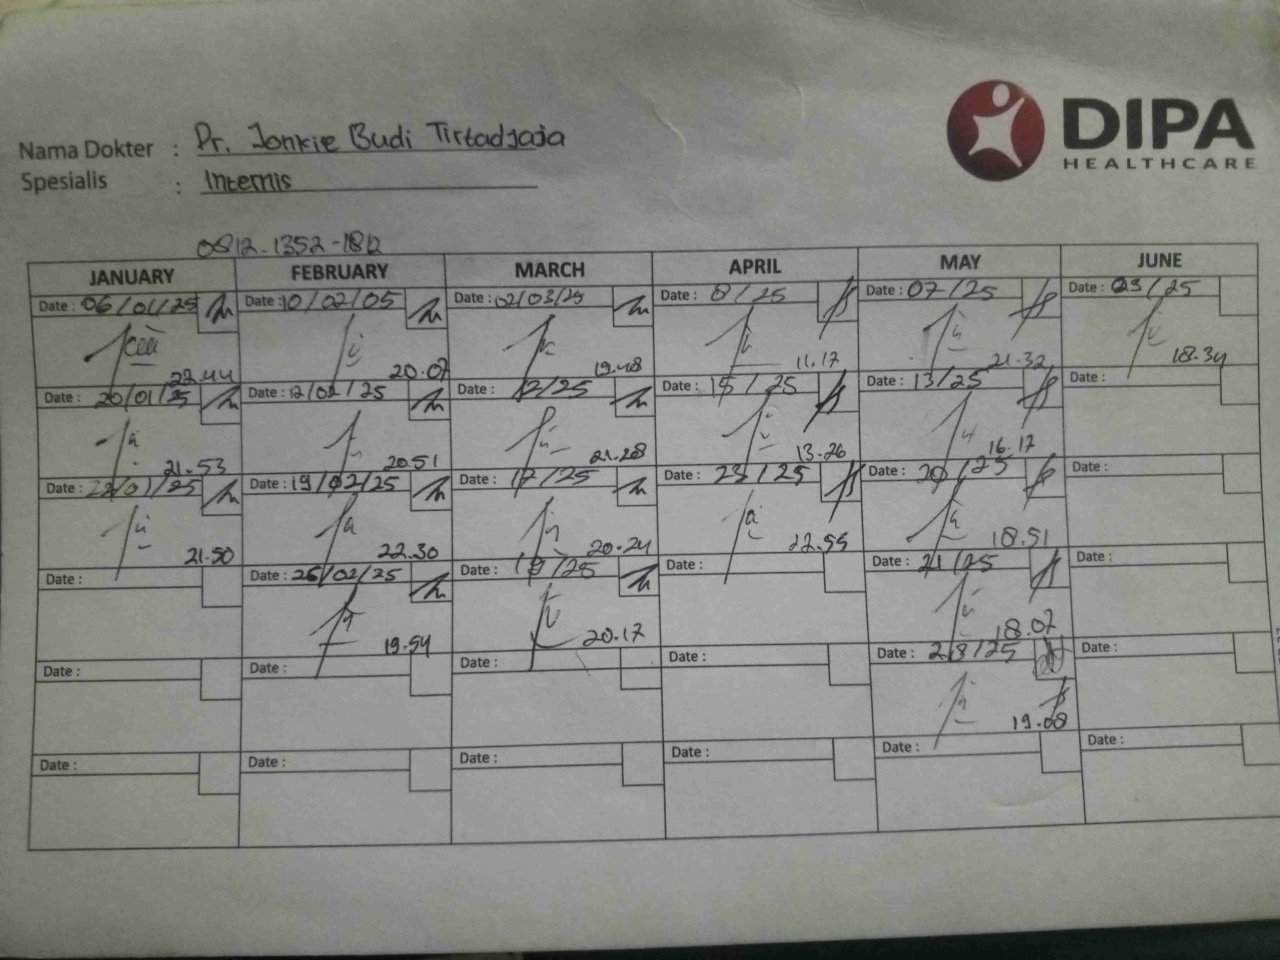 DIPA
HEALTHCARE
Nama Dokter : Dr. Jonkie Budi Tirtadjaja
Spesialis : Internis
0812-1352-1812
JANUARY FEBRUARY MARCH APRIL MAY JUNE
Date : 06/01/25 Date : 10/02/05 Date : 02/03/25 Date : 8/25 Date : 07/25 Date : 03/25
22.44 20.07 19.48 11.17 21.32 18.34
Date : 20/01/25 Date : 12/02/25 Date : 12/25 Date : 15/25 Date : 13/25 Date :
21.53 20.51 21.28 13.26 16.17
Date : /01/25 Date : 19/02/25 Date : 17/25 Date : 23/25 Date : 20/25 Date :
21.50 22.30 20.24 22.55 18.51
Date : Date : 26/02/25 Date : 19/25 Date : Date : 21/25 Date :
19.54 20.17 18.07
Date : Date : Date : Date : Date : 28/25 Date :
19.08
Date : Date : Date : Date : Date : Date :